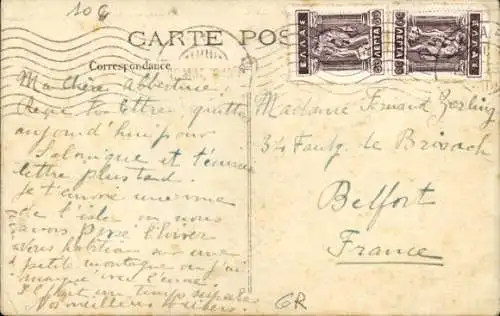 10 G
CARTE POS
ΕΛΛΑΣ
ΛΕΠΤΑ
ΕΛΛΑΣ
ΛΕΠΤΑ
Correspondance
Ma chère Albertine,
Reçu ta lettre, quitte
aujourd'hui pour
Salonique et t'écrirai
lettre plus tard.
Je t'envoie une vue
de l'isle où nous
avons passé l'hiver
Nous habitions sur une
petite montagne
marqué avec l'encre.
Il fait un temps superbe
Nos meilleurs baisers.
Madame Fernand Zerling
34 Faubg. de Brisach
Belfort
France
GR